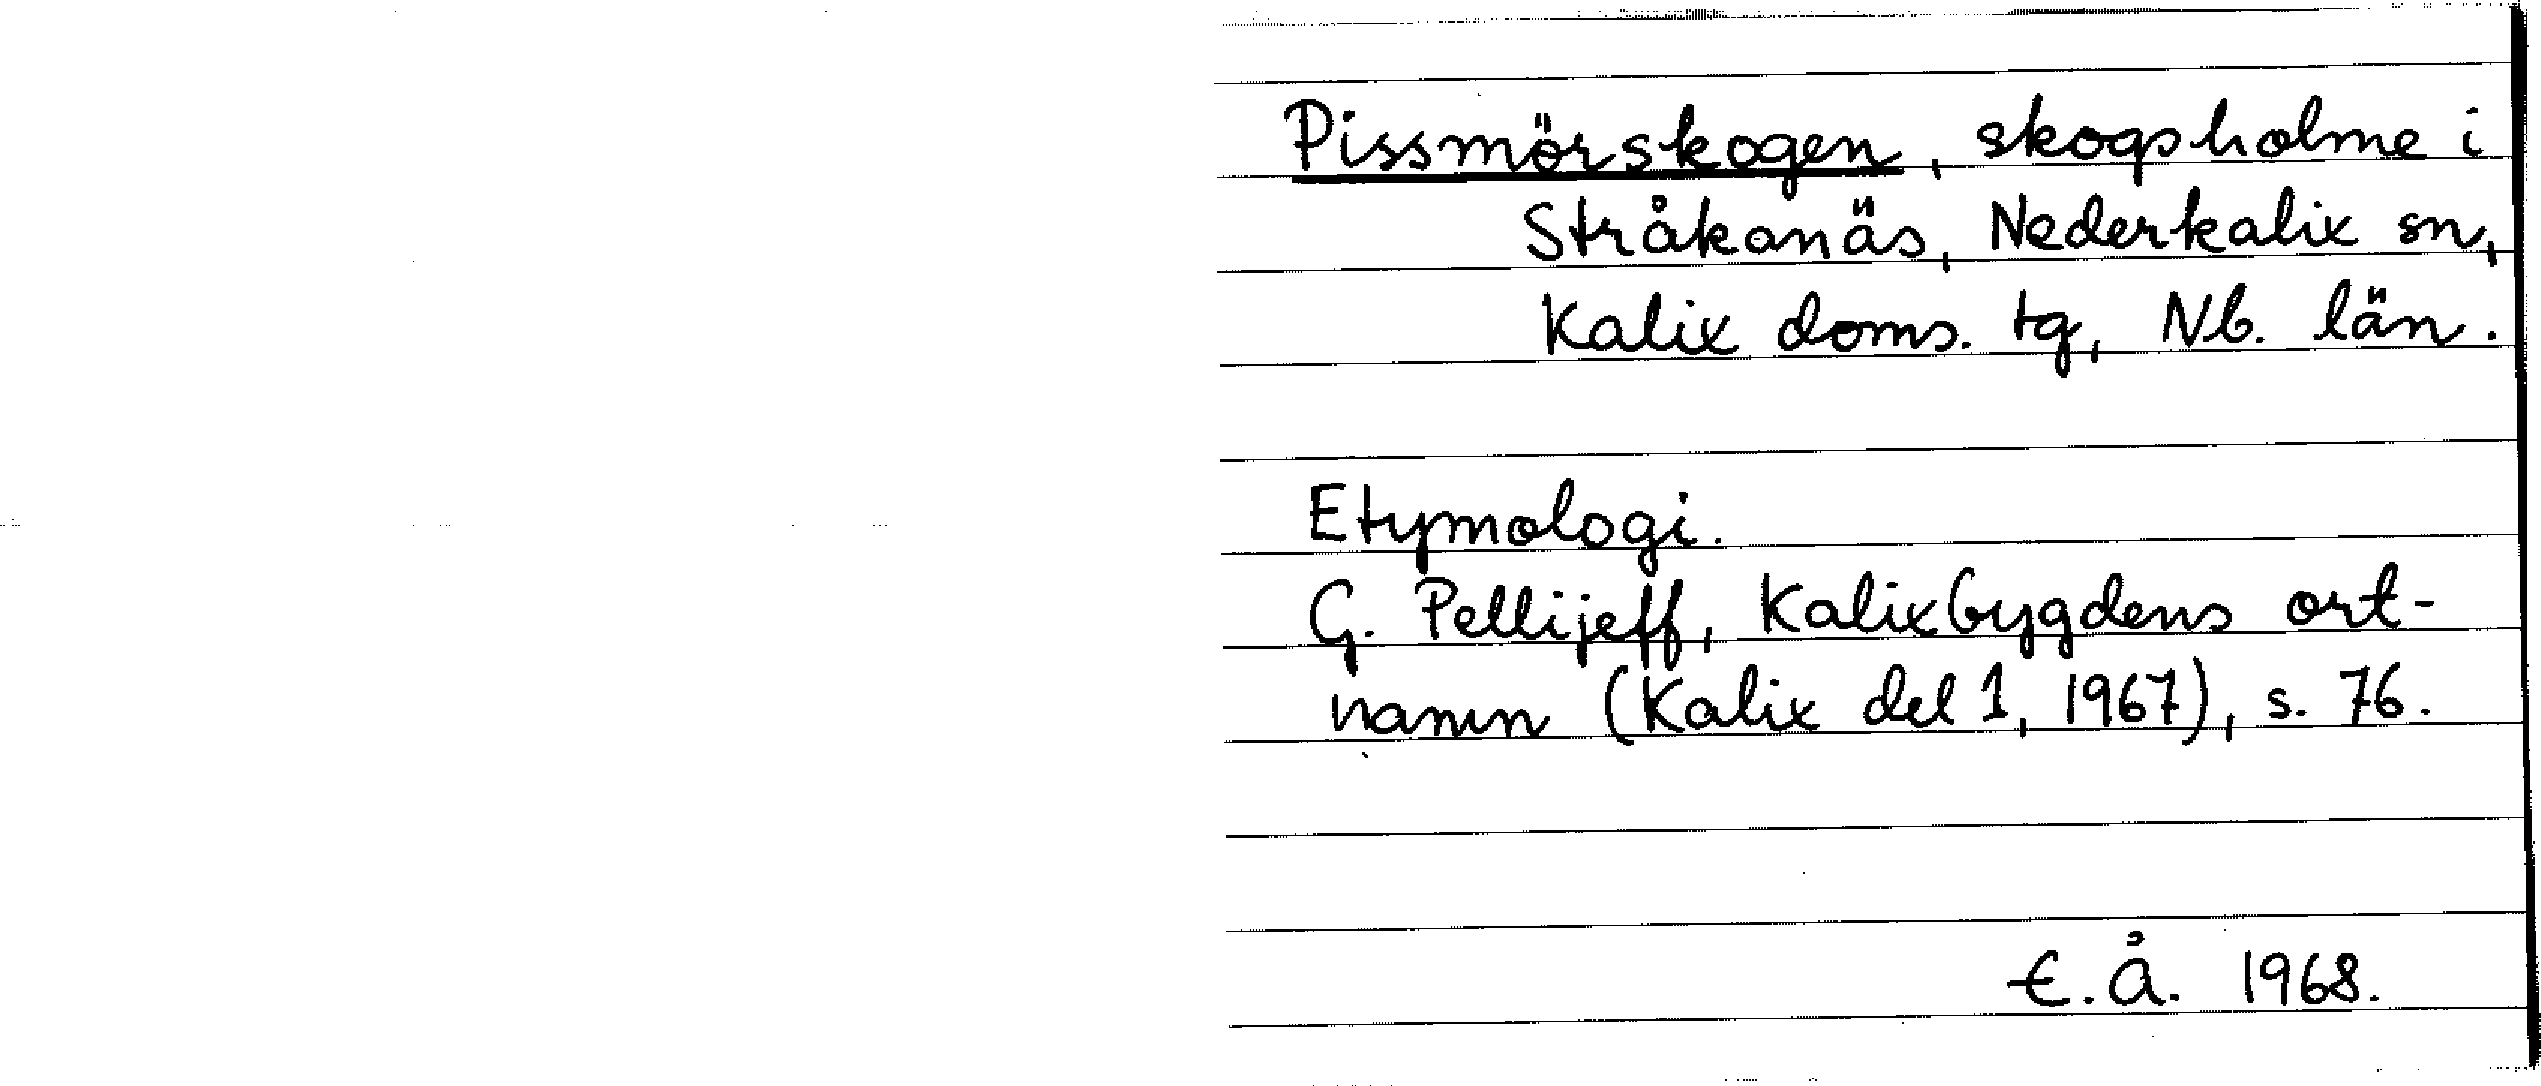 Pissmörskogen, skogsholme i
Stråkanäs, Nederkalix sn,
Kalix doms. tg, Nb. län.
Etymologi.
G. Pellijeff, Kalixbygdens ort-
namn (Kalix del 1, 1967), s. 76.
E.Å. 1968.